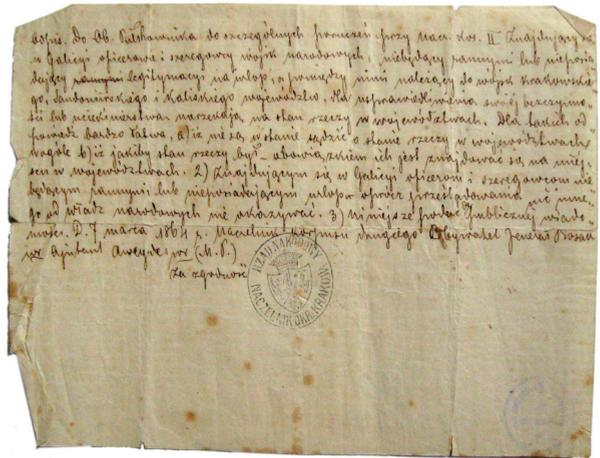 Odpis. Do Ob. Pułkownika do szczególnych poruczeń przy nacz. kor. II Znajdujący się
w Galicyi oficerowie i szeregowcy wojsk narodowych, niebędący rannymi lub nieposia-
dający rannymi legitymacyi na urlop, a pomiędzy nimi należący do wojsk Krakowskie-
go, Sandomirskiego i Kaliskiego województw, dla usprawiedliwienia swój bezczynno-
ści lub ucieknierstwa narzekają na stan rzeczy w województwach. Dla takich od-
powiedź bardzo łatwa, a) iż nie są w stanie sądzić o stanie rzeczy w województwach
wogóle b) iż jakiby stan rzeczy był – obowiązkiem ich jest znajdować się na miej-
scu w województwach. 2) Znajdującym się w Galicyi oficerom i szeregowcom nie-
będącym rannymi lub nieposiadającym urlopu oprócz prześladowania nic inne-
go od władz narodowych nie okazywać. 3) Niniejsze podać publicznej wiado-
mości. D. 7 marca 1864 r. Naczelnik korpusu drugiego Obywatel Jenerał Bosak
Adjutant (M. P.)
Za zgodność
RZĄD NARODOWY
NACZELNIK OKR. KRAKOW.